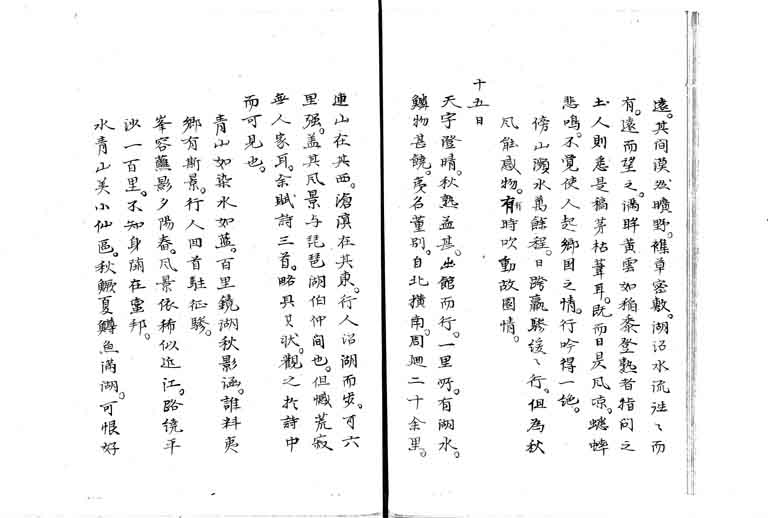 遠。其間漠然曠野。襍草密敷。湖沼水流往々而
有。遠而望之。満眸黄雲如稲黍登熟者。指問之
土人則悉是稿茅枯葦耳。既而日昃風凉。蟋蟀
悲鳴。不覚使人起郷国之情。行吟得一絶。
傍山瀕水万餘程。日跨羸驂緩々行。但為秋
風能感物。有時吹動故園情。
十五日
天宇澄晴。秋熱益甚。出館而行。一里所。有湖水。
鱗物甚饒。夷名董別。自北横南。周廻二十余里。
連山在其西。海浜在其東。行人沿湖而歩。可六
里强。蓋其風景与琵琶湖伯仲間也。但憾荒寂
無人家耳。余賦詩三首。略具其状。観之於詩中
而可見也。
青山如染水如藍。百里鏡湖秋影涵。誰料夷
郷有斯景。行人回首駐征驂。
峯容蘸影夕陽舂。風景依稀似近江。路繞平
沙一百里。不知身隔在蛮邦。
水青山美小仙区。秋鱖夏鱒魚満湖。可恨好